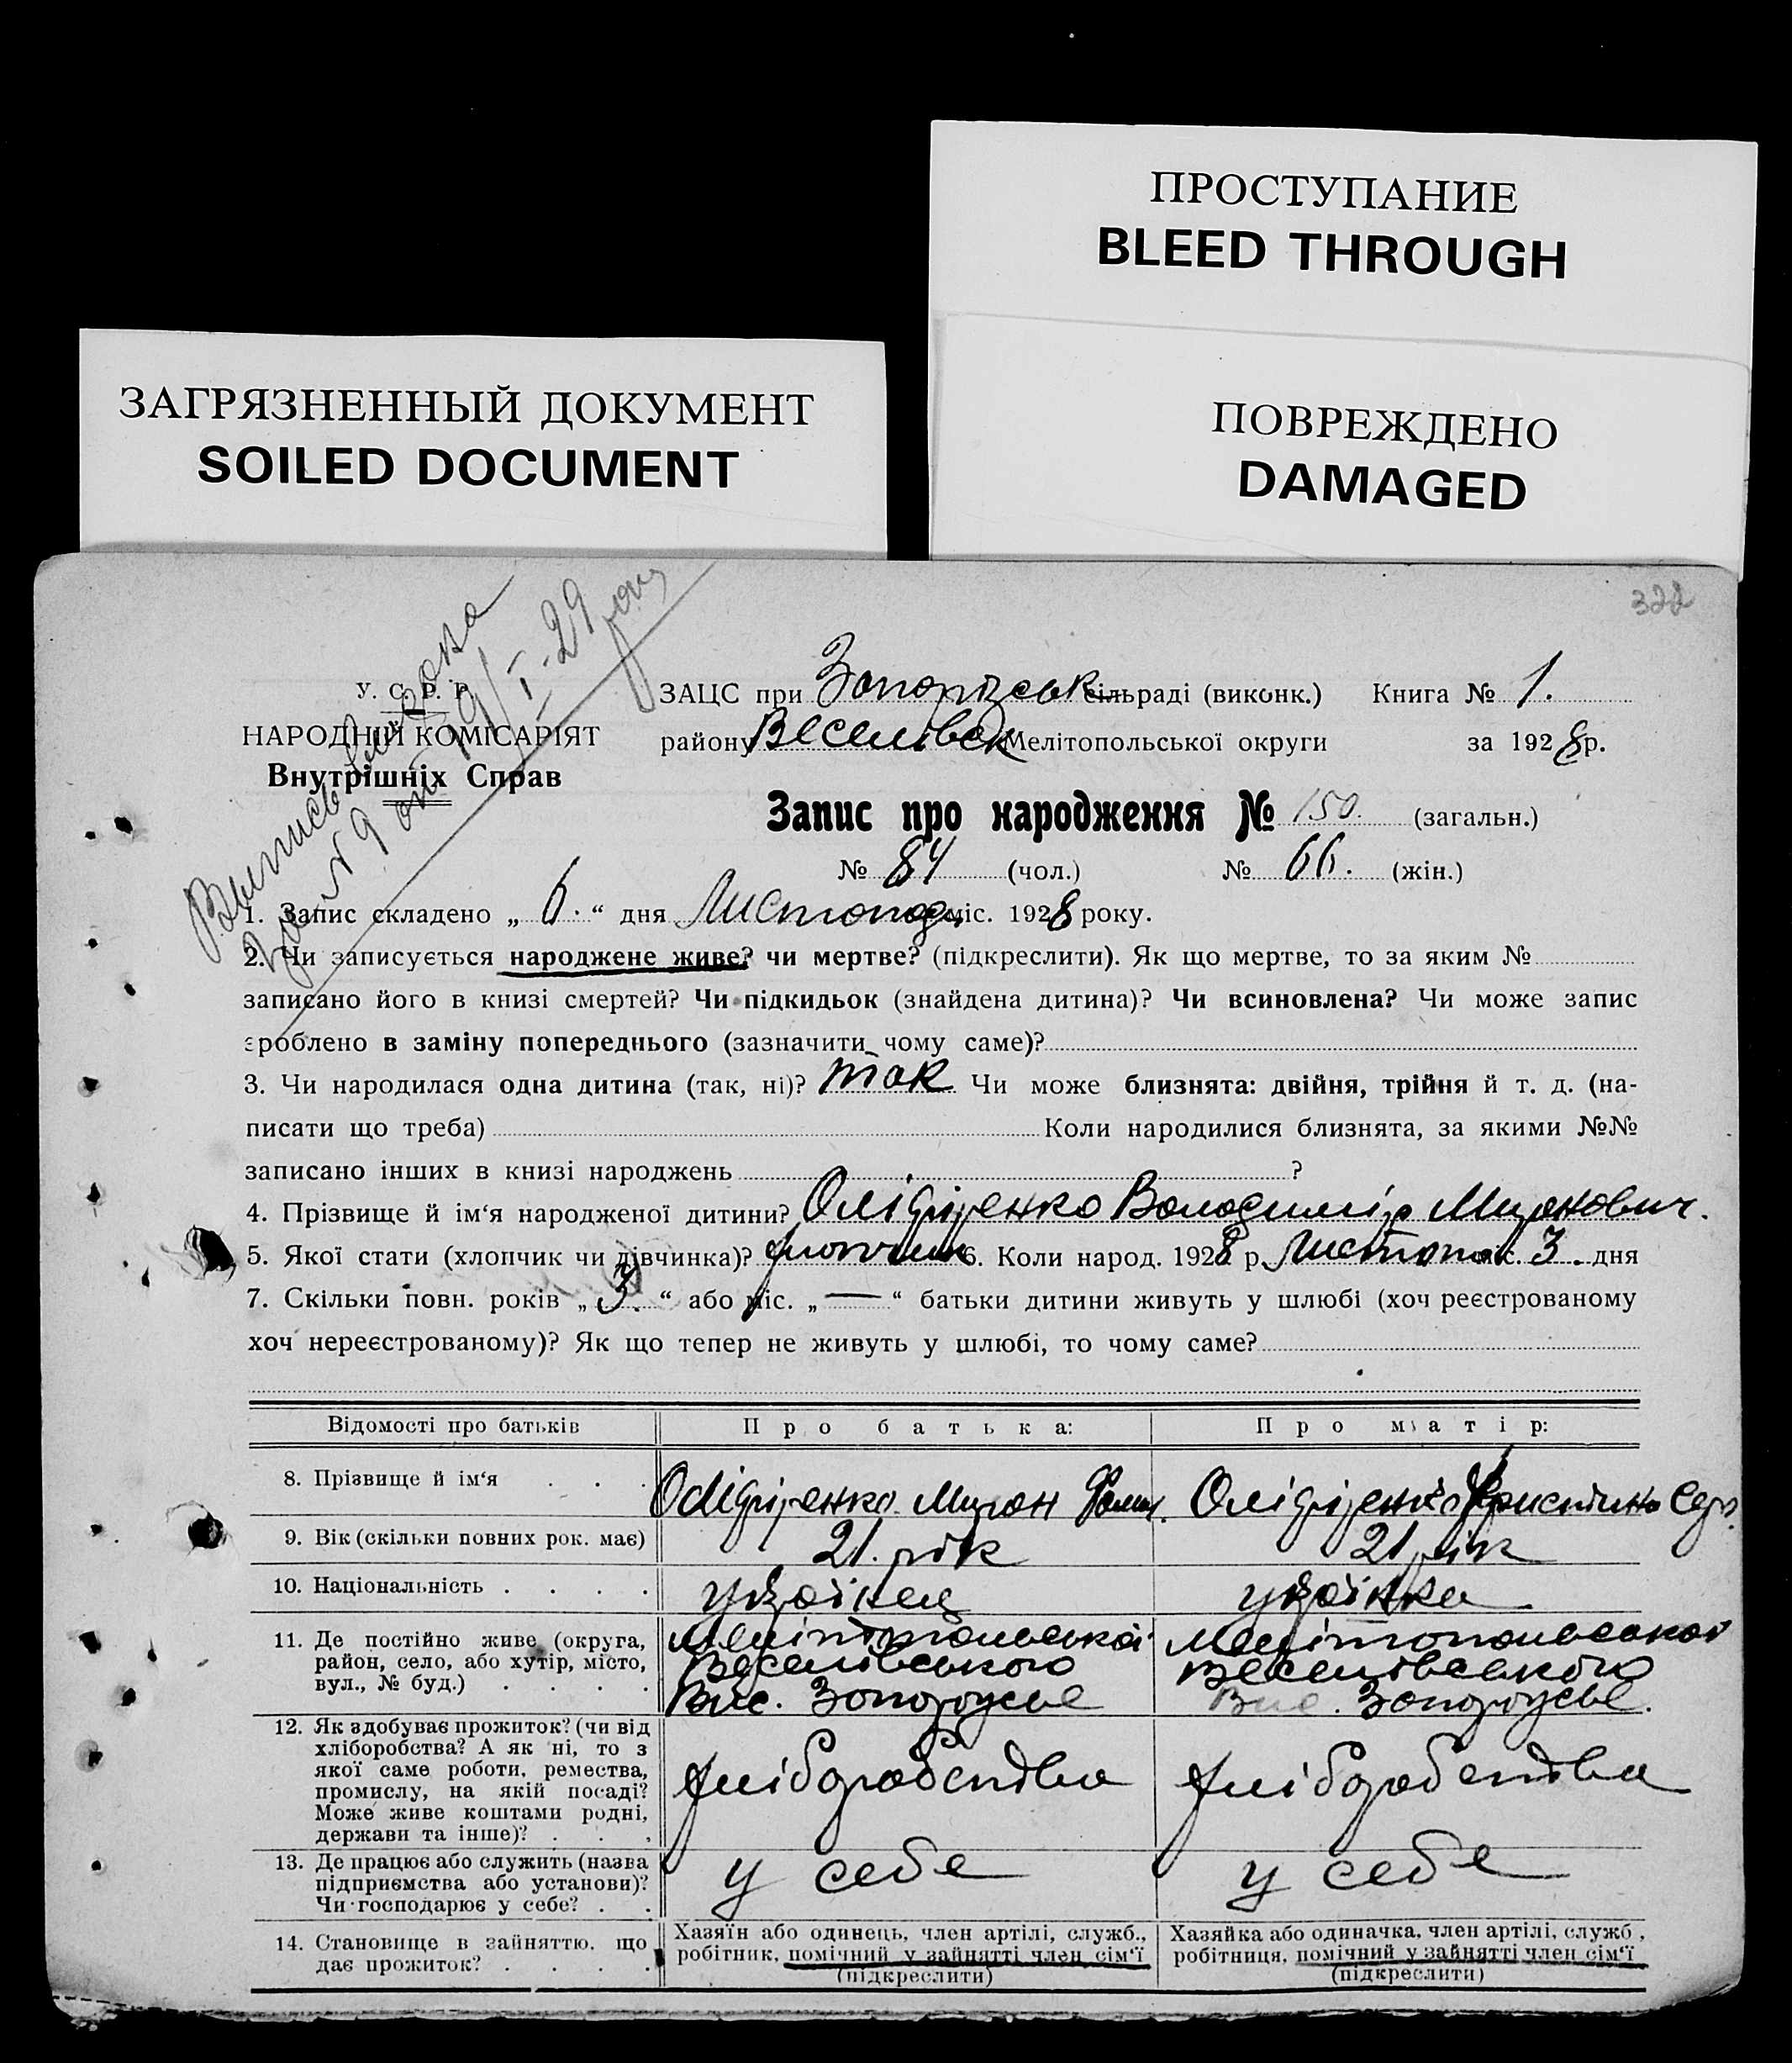 ПРОСТУПАНИЕ
BLEED THROUGH
ЗАГРЯЗНЕННЫЙ ДОКУМЕНТ
SOILED DOCUMENT
ПОВРЕЖДЕНО
DAMAGED
322
Выпись
за № 9 от 19/I-29
У. С. Р. Р.
НАРОДНІЙ КОМІСАРІЯТ
Внутрішніх Справ
ЗАЦС при Запорізськ сільраді (виконк.) Книга № 1.
району Веселівськ Мелітопольської округи за 1928 р.
Запис про народження № 150. (загальн.)
№ 84 (чол.) № 66. (жін.)
1. Запис складено „ 6. “ дня Листопад міс. 1928 року.
2. Чи записується народжене живе? чи мертве? (підкреслити). Як що мертве, то за яким №
записано його в книзі смертей? Чи підкидьок (знайдена дитина)? Чи всиновлена? Чи може запис
зроблено в заміну попереднього (зазначити чому саме)?
3. Чи народилася одна дитина (так, ні)? так Чи може близнята: двійня, трійня й т. д. (на-
писати що треба) Коли народилися близнята, за якими №№
записано інших в книзі народжень ?
4. Прізвище й ім‘я народженої дитини? Оліфіренко Володимір Миронович.
5. Якої стати (хлопчик чи дівчинка)? хлопчик 6. Коли народ. 1928 р. Листопа міс. 3. дня
7. Скільки повн. років „ 3. “ або міс. „ — “ батьки дитини живуть у шлюбі (хоч реєстрованому
хоч нереєстрованому)? Як що тепер не живуть у шлюбі, то чому саме?
Відомості про батьків Про батька: Про матір:
8. Прізвище й ім‘я . . . Оліфіренко Мирон Оліфіренко Христина
9. Вік (скільки повних рок. має) 21. рік 21 рік
10. Національність . . . . українец українка
11. Де постійно живе (округа,
район, село, або хутір, місто,
вул., № буд.) . . . .
Мелітопольської
Веселівського
Вис. Запоріжье
Мелітопольської
Веселівського
Вис. Запоріжье.
12. Як здобуває прожиток? (чи від
хліборобства? А як ні, то з
якої саме роботи, ремества,
промислу, на якій посаді?
Може живе коштами родні,
держави та інше)? . . .
хліборобства хліборобства
13. Де працює або служить (назва
підприємства або установи)?
Чи господарює у себе? . .
у себе у себе
14. Становище в зайняттю, що
дає прожиток? . . . .
Хазяїн або одинець, член артілі, служб.,
робітник, помічний у зайнятті член сім‘ї
(підкреслити)
Хазяйка або одиначка, член артілі, служб.,
робітниця, помічний у зайнятті член сім‘ї
(підкреслити)